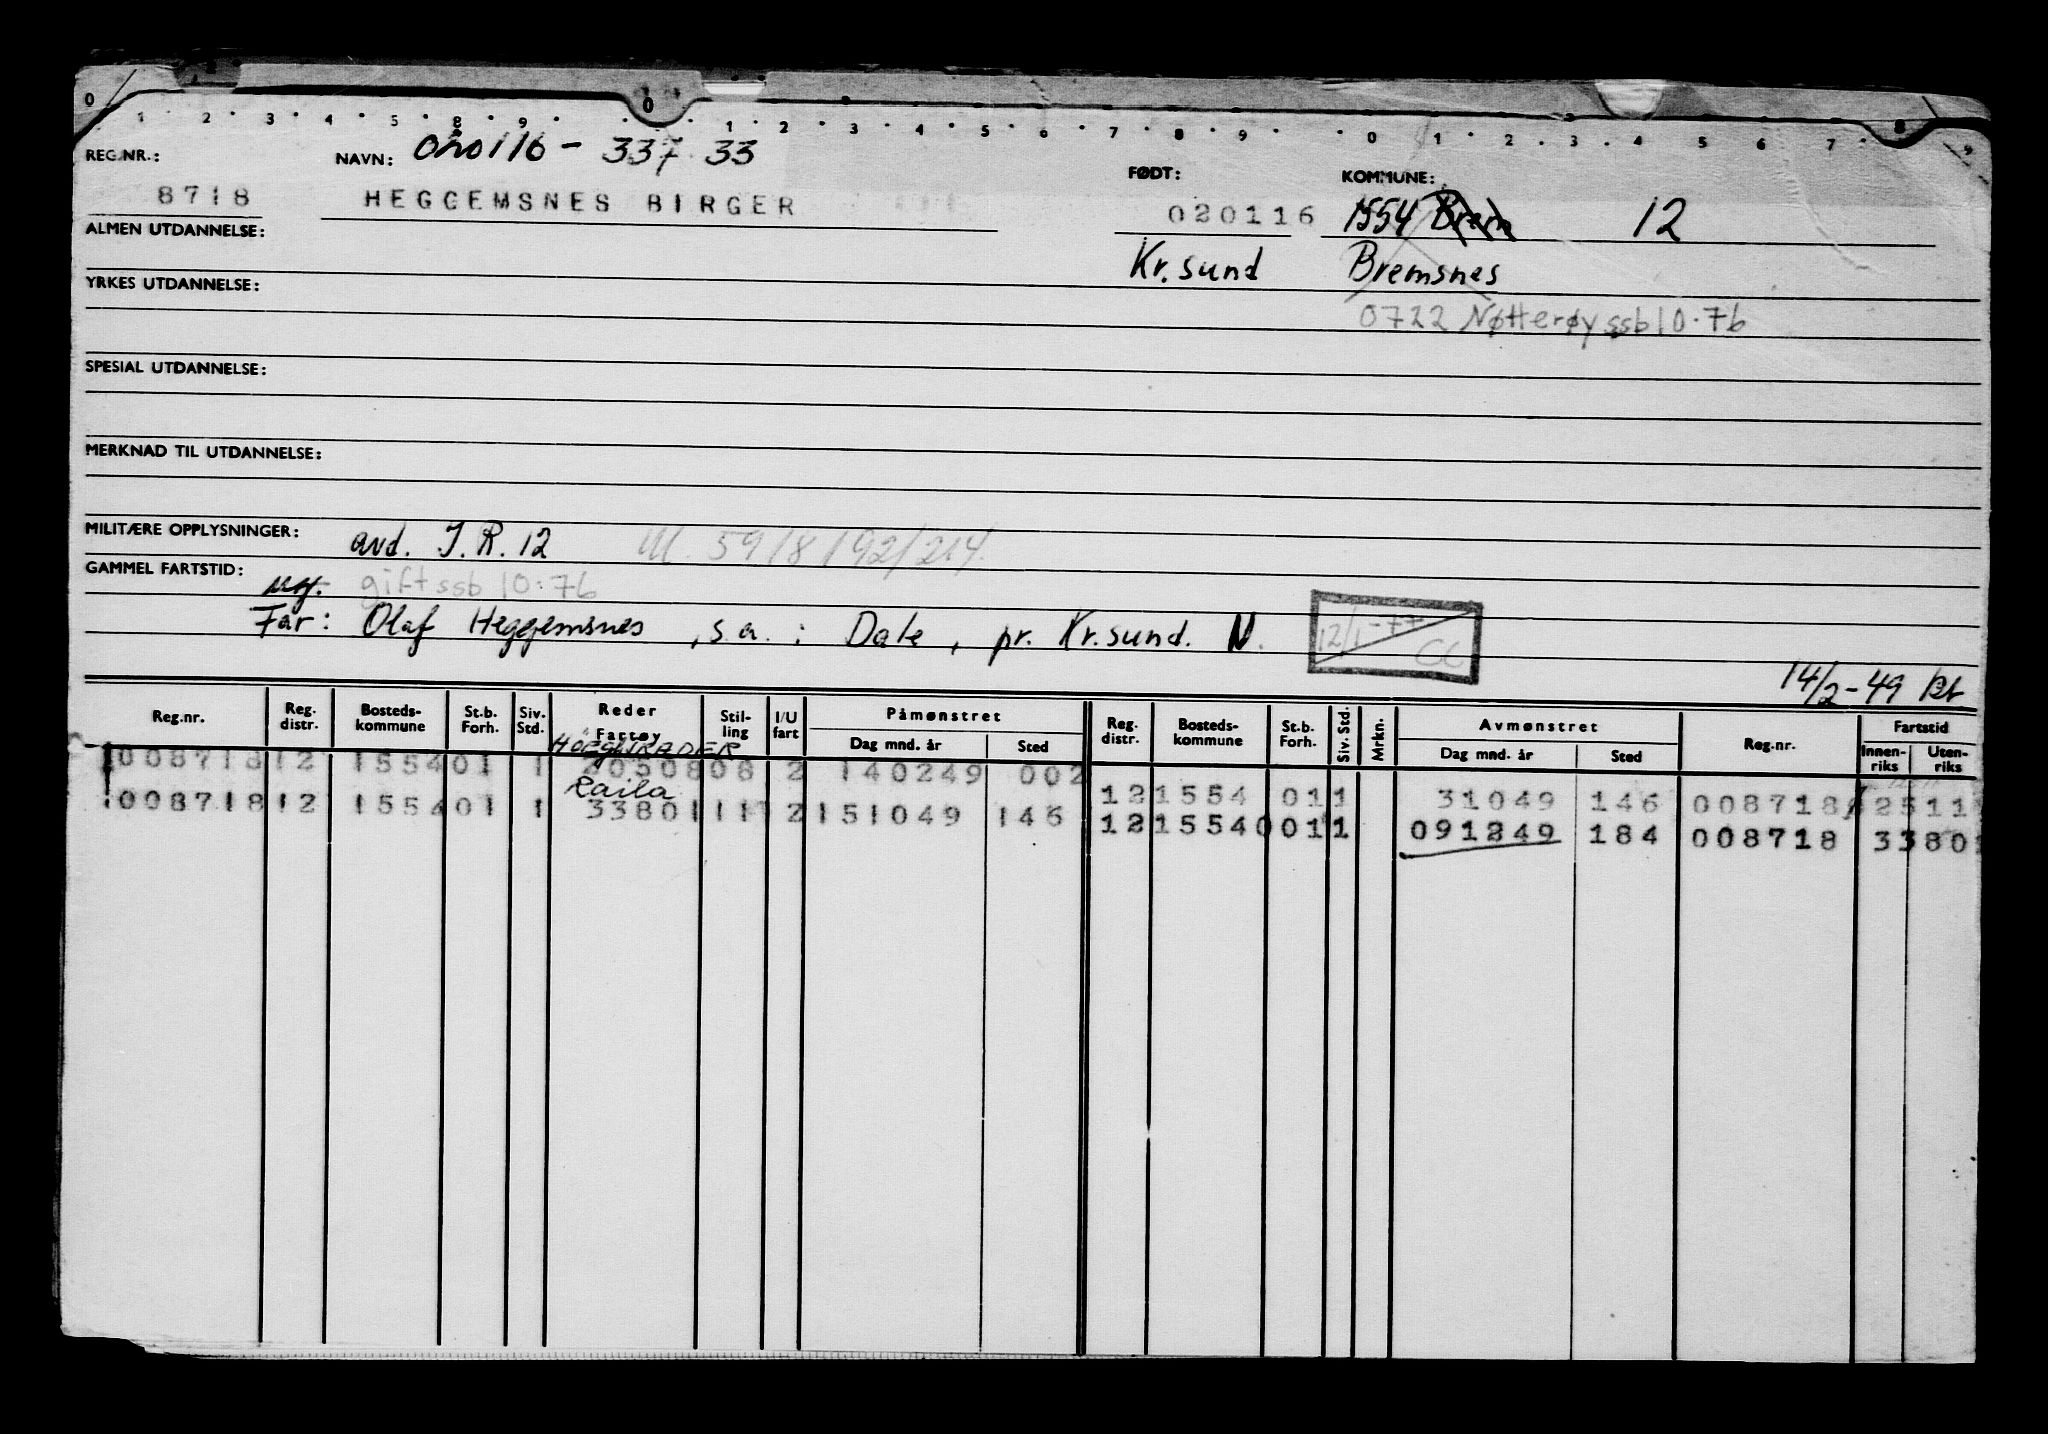 0 0 8
1 2 3 4 5 8 9 1 2 3 4 5 6 7 8 9 0 1 2 3 4 5 6 7 9
REG.NR.: NAVN: 020116 - 337 33 FØDT: KOMMUNE:
8718 HEGGEMSNES BIRGER 020116 1554 Brem 12
ALMEN UTDANNELSE: Kr.sund Bremsnes
YRKES UTDANNELSE:
0722 Nøtterøy ssb 10.76
SPESIAL UTDANNELSE:
MERKNAD TIL UTDANNELSE:
MILITÆRE OPPLYSNINGER: avd. I.R. 12 M. 59/8/92/214.
GAMMEL FARTSTID: ug. gift ssb 10.76
Far: Olaf Heggemsnes, s.a.: Dale, pr. Kr.sund. N. 12/1-77 CC
14/2-49
Reg.nr. Reg. distr. Bosteds-kommune St.b. Forh. Siv. Std. Reder Fartøy Stil-ling I/U fart Påmønstret Dag mnd. år Sted Reg. distr. Bosteds-kommune St.b. Forh. Siv. Std. Mrkn. Avmønstret Dag mnd. år Sted Reg.nr. Fartstid Innen-riks Uten-riks
HÖEGH TRADER
008718 12 1554 01 1 2050808 2 140249 002 12 1554 01 1 31049 146 008718 2511
Raila
008718 12 1554 01 1 3380111 2 151049 146 12 15540 01 1 091249 184 008718 3380